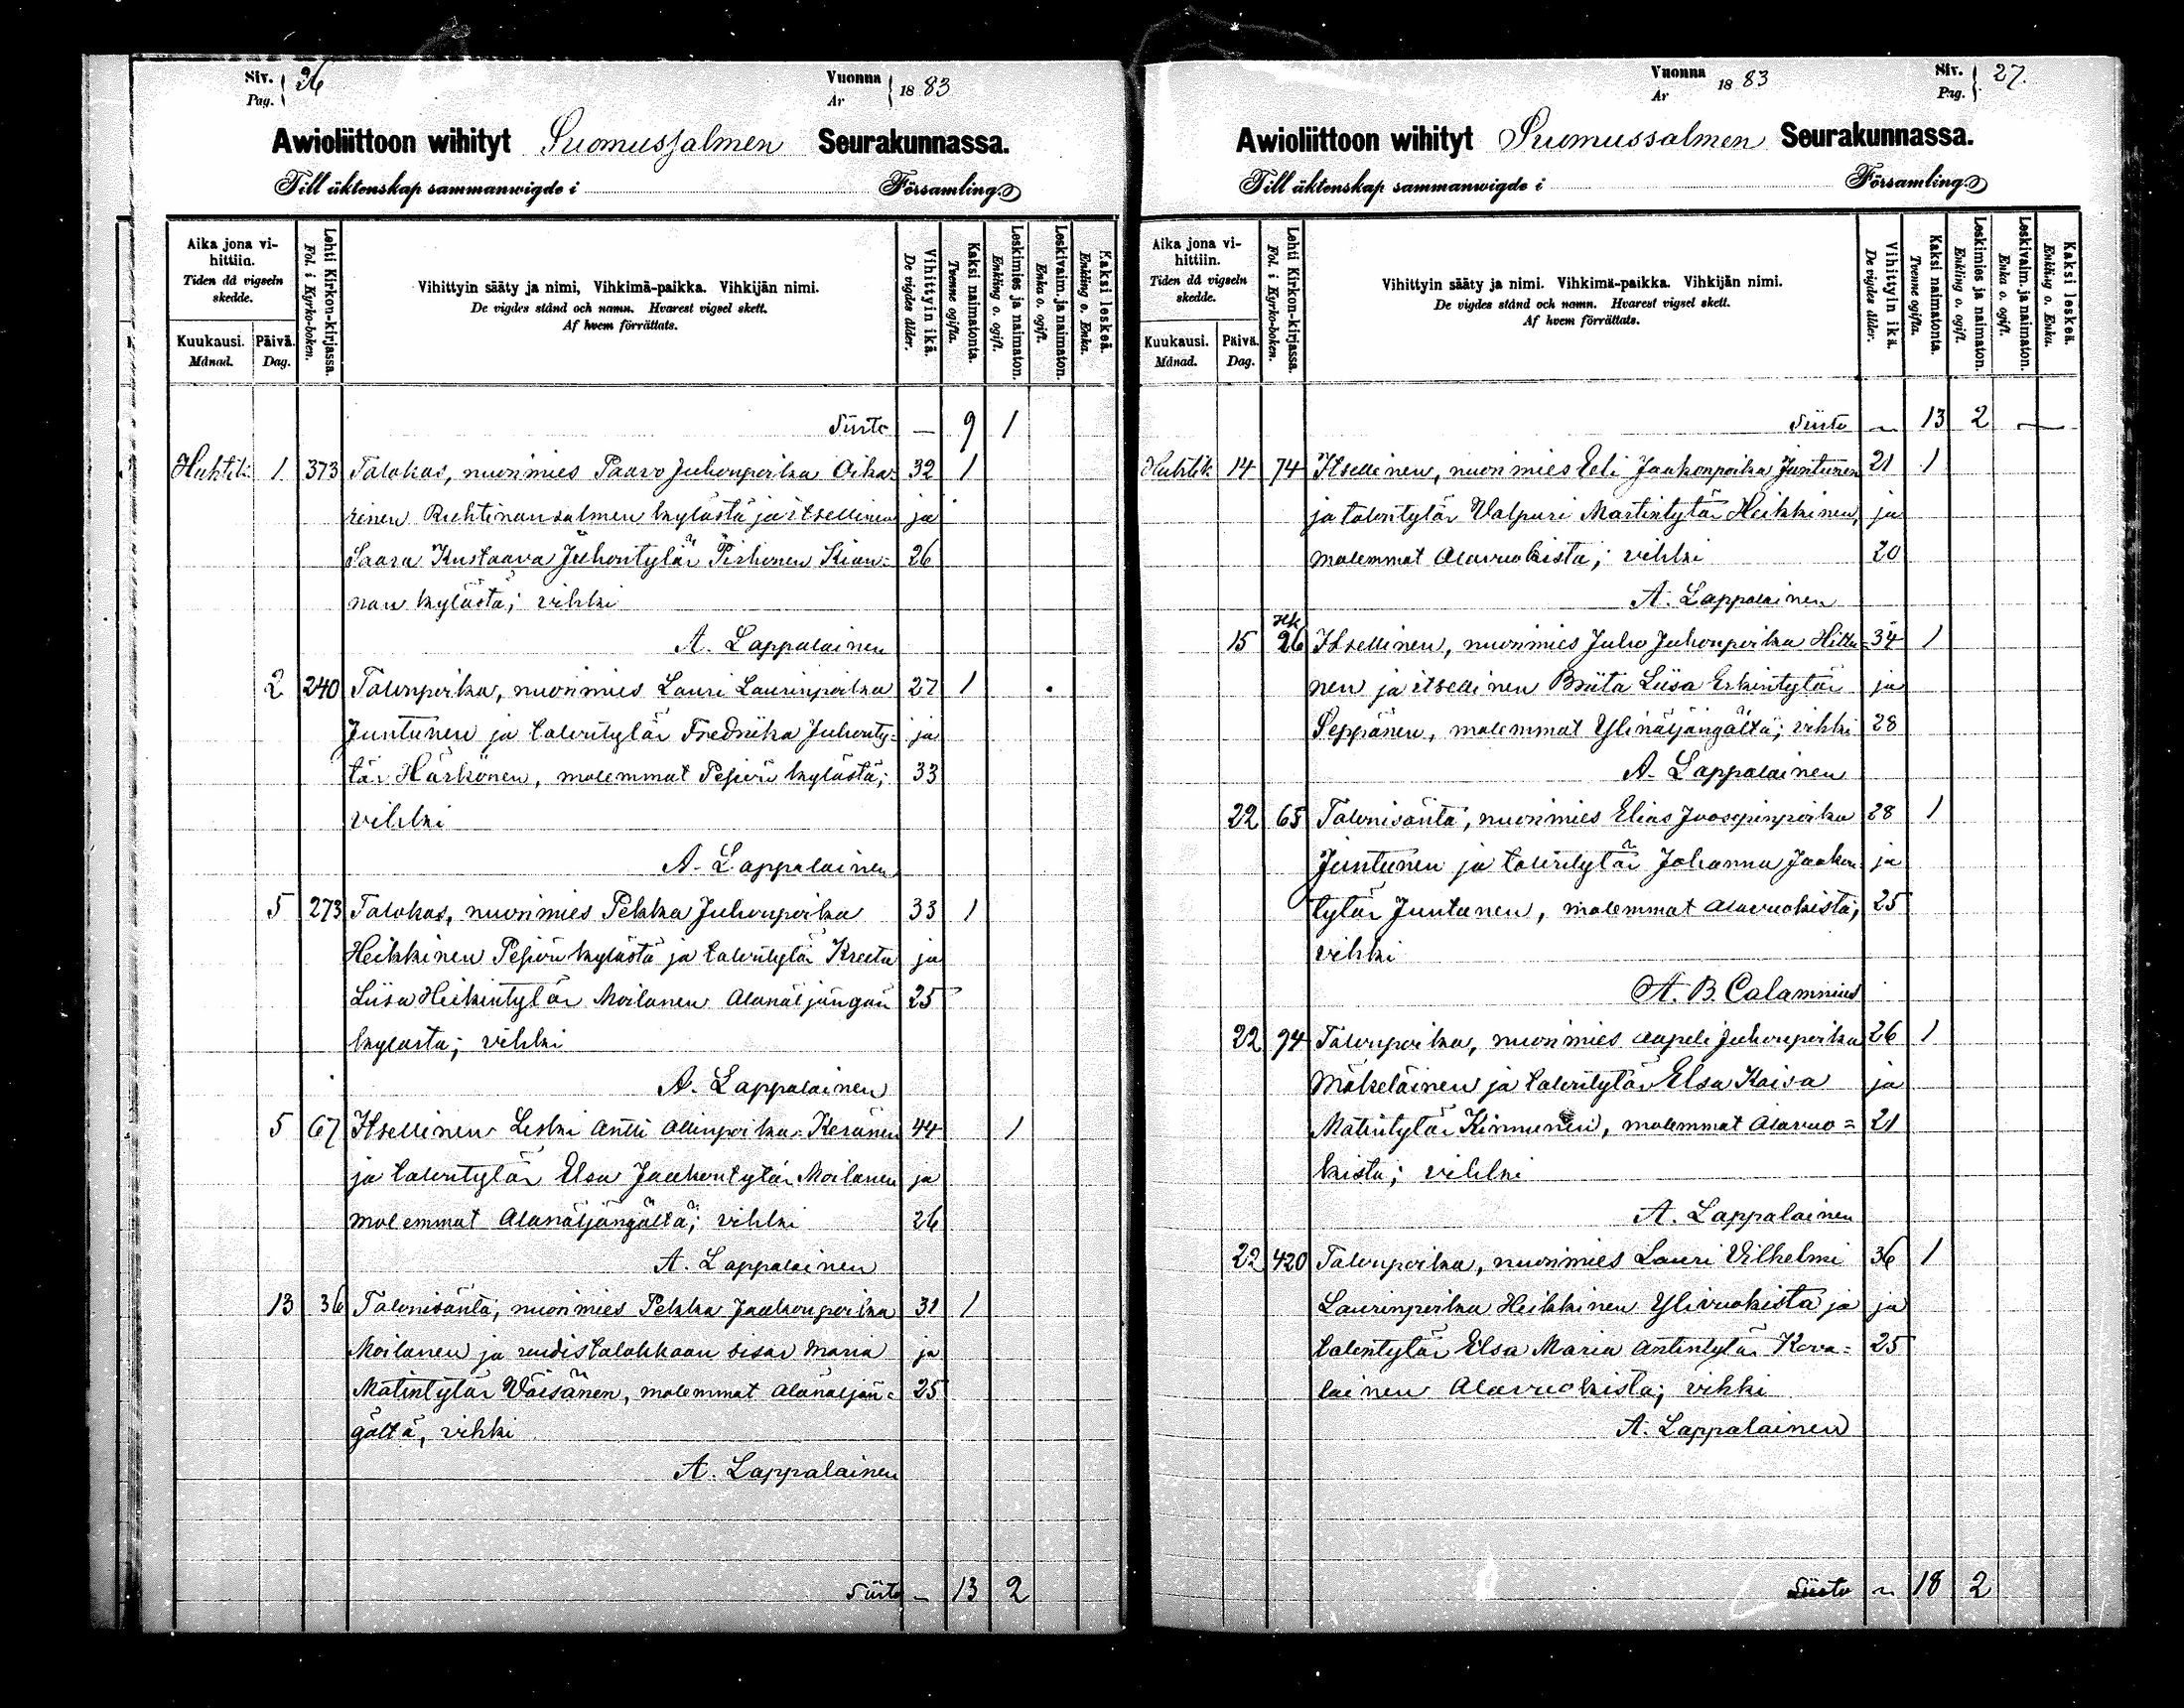 Siv. Pag. 26
Vuonna Ar 1883
Awioliittoon wihityt Suomussalmen Seurakunnassa.
Till äktenskap sammanwigde i Församling.
Aika jona vihittiin.
Tiden då vigseln skedde.
Kuukausi. Månad.
Päivä. Dag.
Lehti Kirkon-kirjassa. Fol. i Kyrko-boken.
Vihittyin sääty ja nimi, Vihkimä-paikka. Vihkijän nimi.
De vigdes stånd och namn. Hvarest vigsel skett.
Af hvem förrättats.
Vihittyin ikä. De vigdes ålder.
Kaksi naimatonta. Tvenne ogifta.
Leskimies ja naimaton. Enkling o. ogift.
Leskivaim. ja naimaton. Enka o. ogift.
Kaksi leskeä. Enkling o. Enka.
Siirto — 9 1
Huhtik 1 373 Talokas, nuorimies Paavo Juhonpoika Oika- 32 1
rinen Ruhtinansalmen kylästä ja itsellinen ja
Saara Kustaava Juhontytär Pirhonen Kian- 26
nan kylästä; vihki
A. Lappalainen
2 240 Talonpoika, nuorimies Lauri Laurinpoika 27 1
Juntunen ja talontytär Fredrika Juhonty- ja
tär Härkönen, molemmat Pesiön kylästä; 33
vihki
A. Lappalainen
5 273 Talokas, nuorimies Pekka Juhonpoika 33 1
Heikkinen Pesiön kylästä ja talontytär Kreeta ja
Liisa Heikintytär Moilanen Alanäljängän 25
kylästä; vihki
A. Lappalainen
5 67 Itsellinen Leski Antti Ollinpoika Keränen 44 1
ja talontytär Elsa Jaakontytär Moilanen ja
molemmat Alanäljängältä; vihki 26
A. Lappalainen
13 36 Talonisäntä, nuorimies Pekka Jaakonpoika 31 1
Moilanen ja uudistalokkaan sisar Maria ja
Matintytär Väisänen, molemmat Alanäljän- 25
gältä, vihki
A. Lappalainen
Siirto — 13 2
Vuonna Ar 1883
Siv. Pag. 27.
Awioliittoon wihityt Suomussalmen Seurakunnassa.
Till äktenskap sammanwigde i Församling.
Aika jona vihittiin.
Tiden då vigseln skedde.
Kuukausi. Månad.
Päivä. Dag.
Lehti Kirkon-kirjassa. Fol. i Kyrko-boken.
Vihittyin sääty ja nimi. Vihkimä-paikka. Vihkijän nimi.
De vigdes stånd och namn. Hvarest vigsel skett.
Af hvem förrättats.
Vihittyin ikä. De vigdes ålder.
Kaksi naimatonta. Tvenne ogifta.
Leskimies ja naimaton. Enkling o. ogift.
Leskivaim. ja naimaton. Enka o. ogift.
Kaksi leskeä. Enkling o. Enka.
Siirto — 13 2 —
Huhtik 14 74 Itsellinen, nuorimies Eeli Jaakonpoika Juntunen 21 1
ja talontytär Valpuri Martintytär Heikkinen, ja
molemmat Alavuokista; vihki 20
A. Lappalainen
15 26 Itsellinen, nuorimies Juho Juhonpoika Hiltu- 34 1
nen ja itsellinen Briita Liisa Erkintytär ja
Seppänen, molemmat Ylinäljängältä; vihki 28
A. Lappalainen
22 65 Talonisäntä, nuorimies Elias Joosepinpoika 28 1
Juntunen ja talontytär Johanna Jaakon ja
tytär Juntunen, molemmat Alavuokista, 25
vihki
A. B. Calamnius
22 94 Talonpoika, nuorimies Aapeli Juhonpoika 26 1
Mäkeläinen ja talontytär Elsa Kaisa ja
Matintytär Kinnunen, molemmat Alavuo= 21
kista; vihki
A. Lappalainen
22 420 Talonpoika, nuorimies Lauri Vilhelmi 36 1
Laurinpoika Heikkinen Ylivuokista ja ja
talontytär Elsa Maria Antintytär Kova= 25
lainen Alavuokista; vihki
A. Lappalainen
Siirto — 18 2